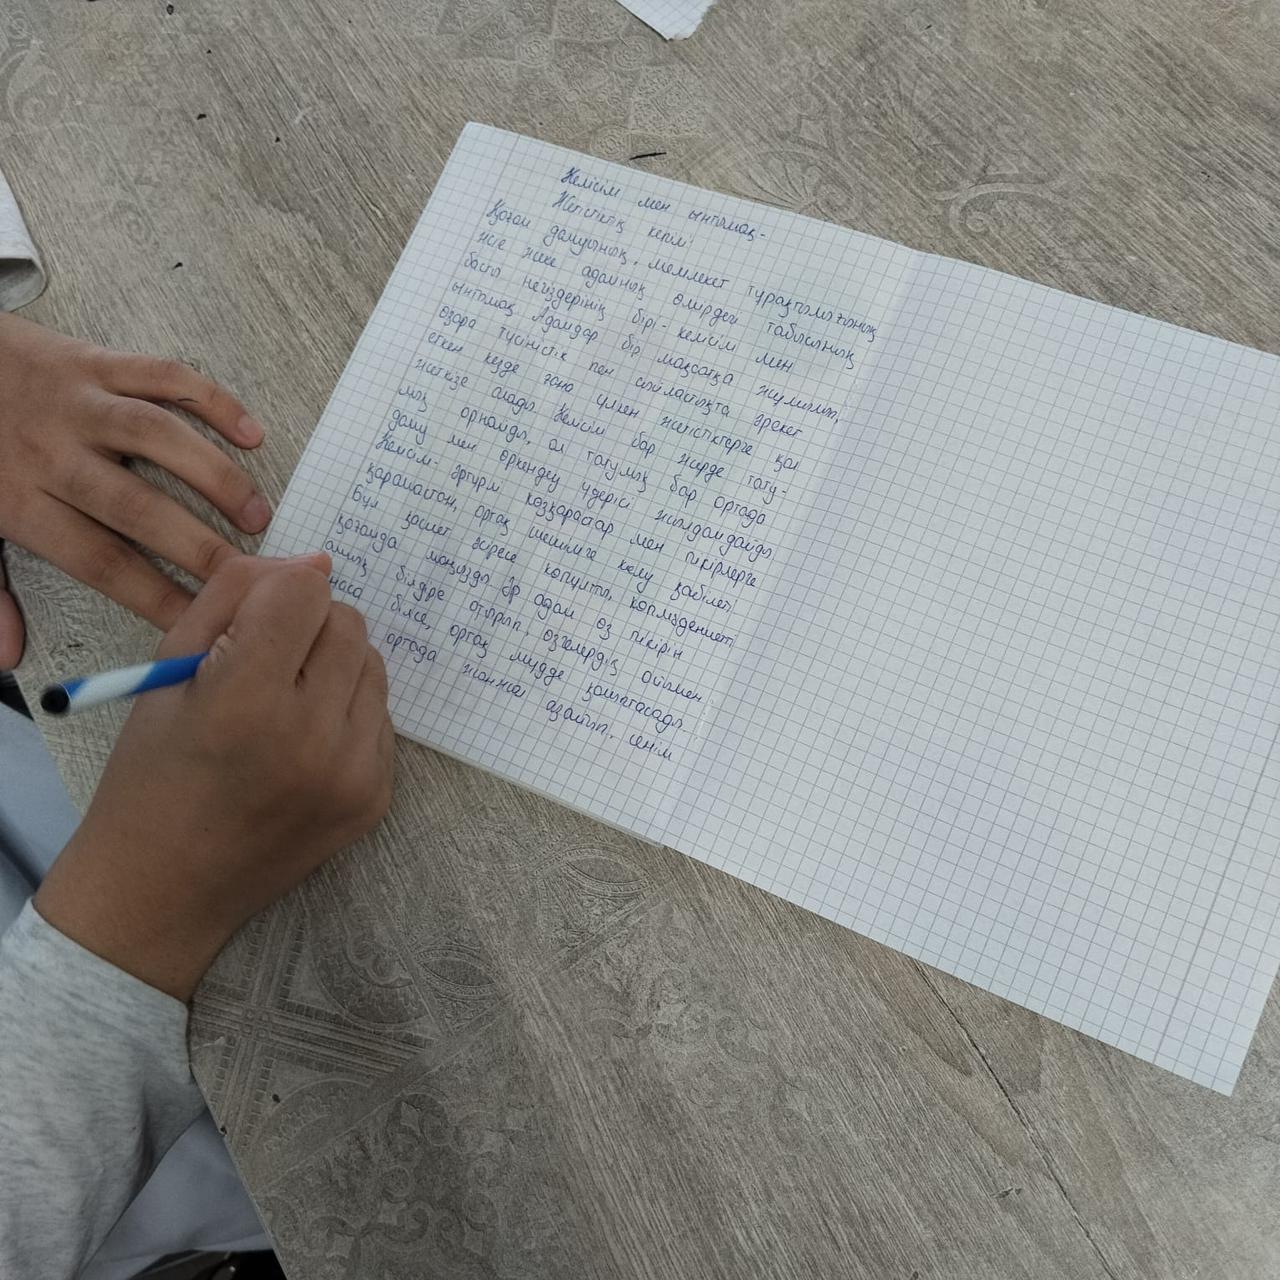 Келісім мен ынтымақ-
Жетістіктің кепілі
Қоғам дамуының, мемлекет тұрақтылығының
және жеке адамның өмірдегі табысының
басты негіздерінің бірі - келісім мен
ынтымақ. Адамдар бір мақсатқа жұмылып,
өзара түсіністік пен сыйластықта әрекет
еткен кезде ғана үлкен жетістіктерге қол
жеткізе алады. Келісім бар жерде тату-
лық орнайды, ал татулық бар ортада
даму мен өркендеу үдерісі жылдамдайды.
Келісім- әртүрлі көзқарастар мен пікірлерге
қарамастан, ортақ шешімге келу қабілеті.
Бұл қасиет әсіресе көпұлтты, көпмәдениетті
қоғамда маңызды. Әр адам өз пікірін
ашық білдіре отырып, өзгелердің ойымен
санаса білсе, ортақ мүдде қалыптасады.
ортада жанжал азайып, сенім